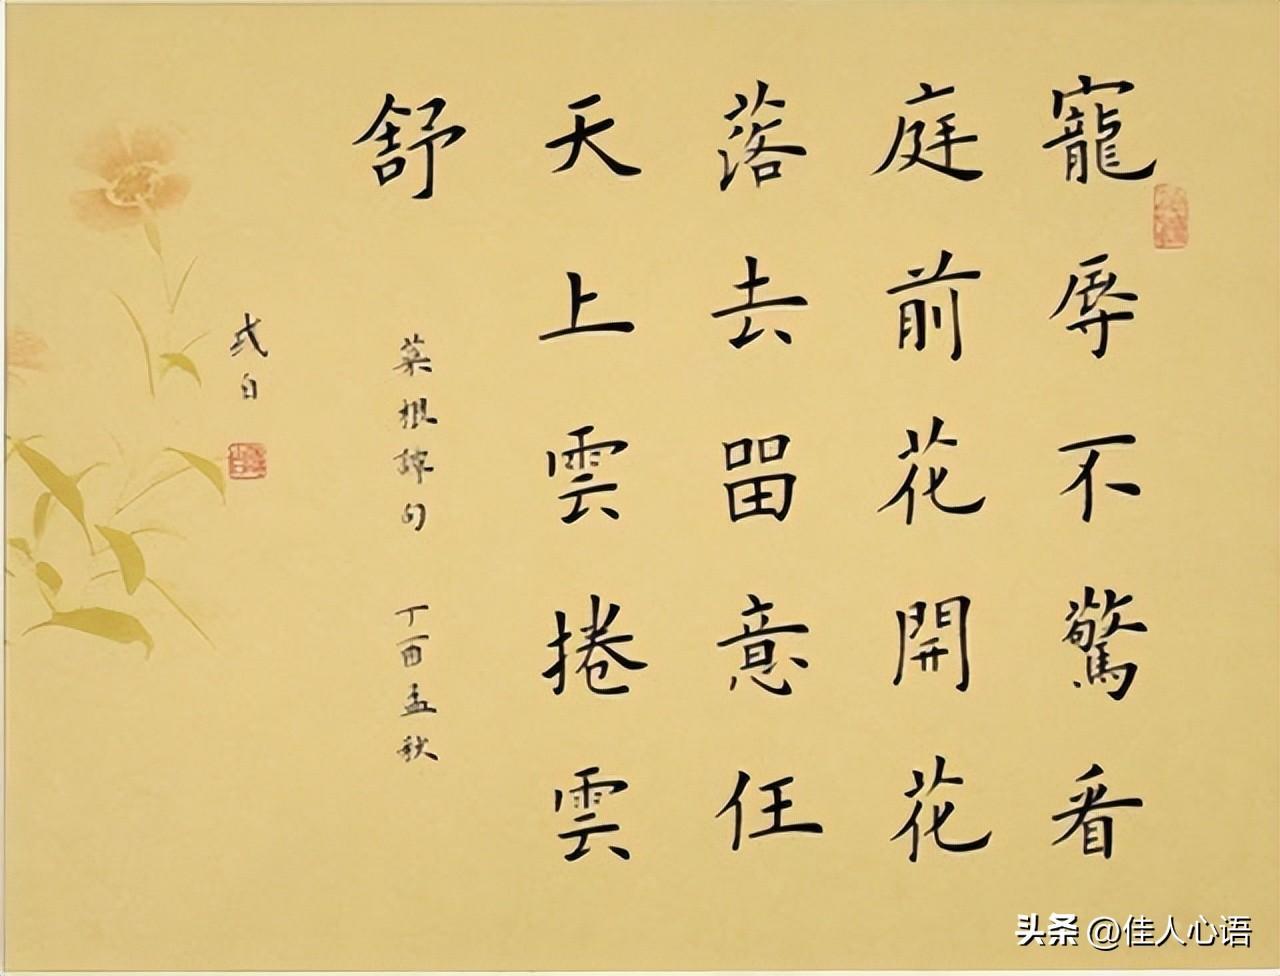 寵辱不驚看
庭前花開花
落去留意任
天上雲捲雲
舒
菜根譚句 丁酉孟秋
弍白
头条 @佳人心语